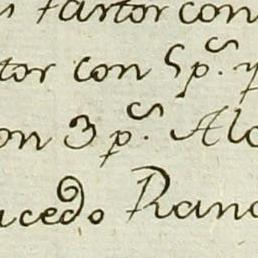 Tartor con
tor con 5 p.s y
on 3 p.s Alo
ucedo Rano